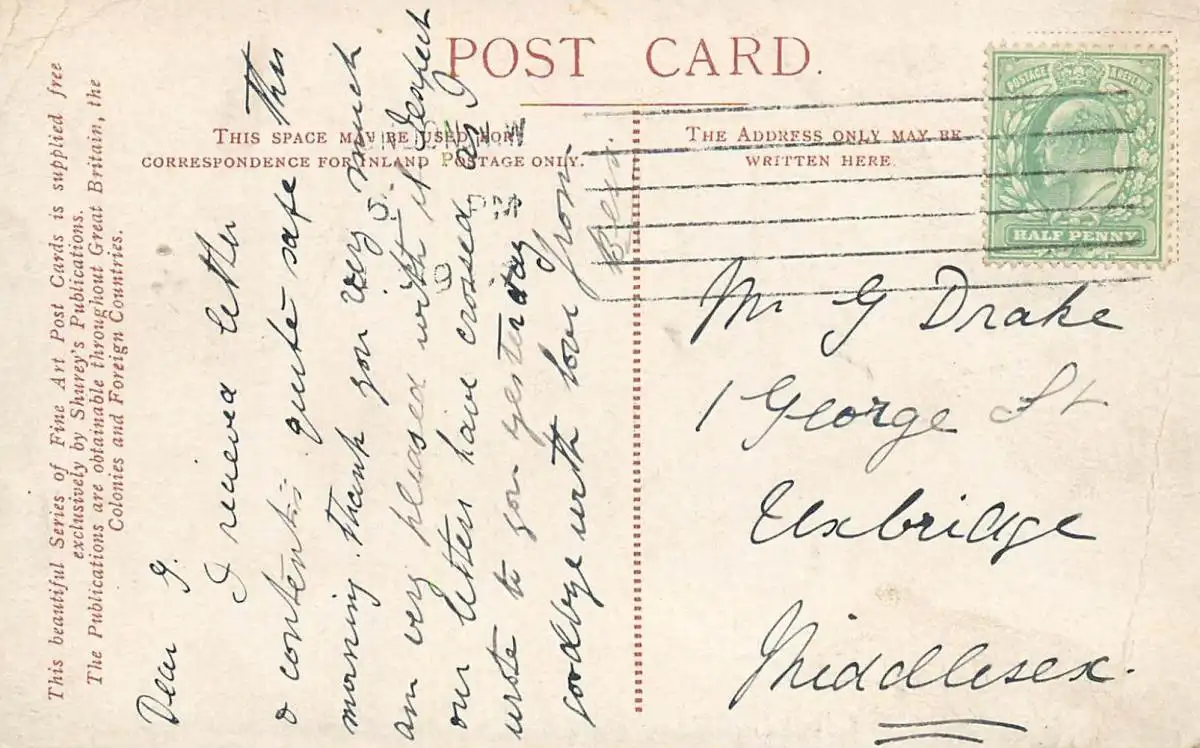 POST CARD.
THIS SPACE MAY BE USED FOR
CORRESPONDENCE FOR INLAND POSTAGE ONLY.
THE ADDRESS ONLY MAY BE
WRITTEN HERE.
POSTAGE & REVENUE
HALF PENNY
This beautiful Series of Fine Art Post Cards is supplied free
exclusively by Shurey's Publications.
The Publications are obtainable throughout Great Britain, the
Colonies and Foreign Countries.
Dear G.
I recieved letter
& contents quite safe this
morning. Thank you very much
am very pleased with it. I expect
our letters have crossed as I
wrote to you yesterday
goodbye with love from
Mr G Drake
1 George St
Uxbridge
Middlesex.